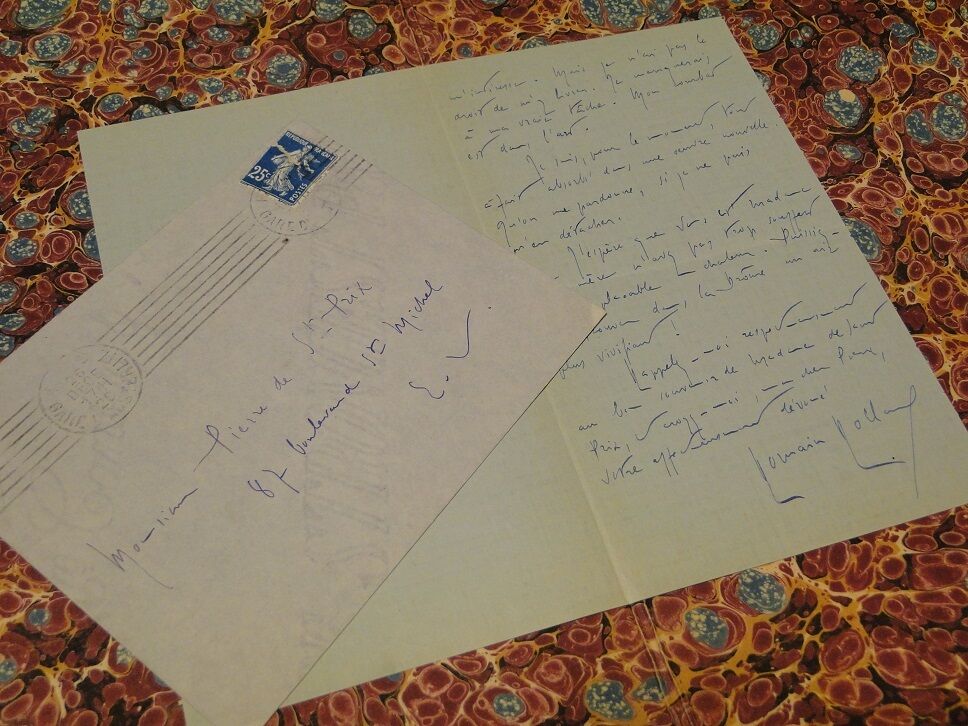 25c
POSTES
GARE
GARE
Monsieur Pierre de St Prix
87 boulevard St Michel
E. V.
m'intéresse. Mais je n'ai pas le
droit de m'y livrer. Je manquerais
à ma vraie tâche. Mon combat
est dans l'art.
Je suis, pour le moment, tout
à fait absorbé dans une œuvre nouvelle.
Qu'on me pardonne, si je ne puis
m'en détacher.
J'espère que vous et Madame
n'avez pas trop souffert
chaleur. Puissiez-
dans la Drôme un air
plus vivifiant !
Rappelez-moi respectueusement
au bon souvenir de Madame de Saint
Prix, croyez-moi, mon cher Pierre,
votre affectueusement dévoué
Romain Rolland